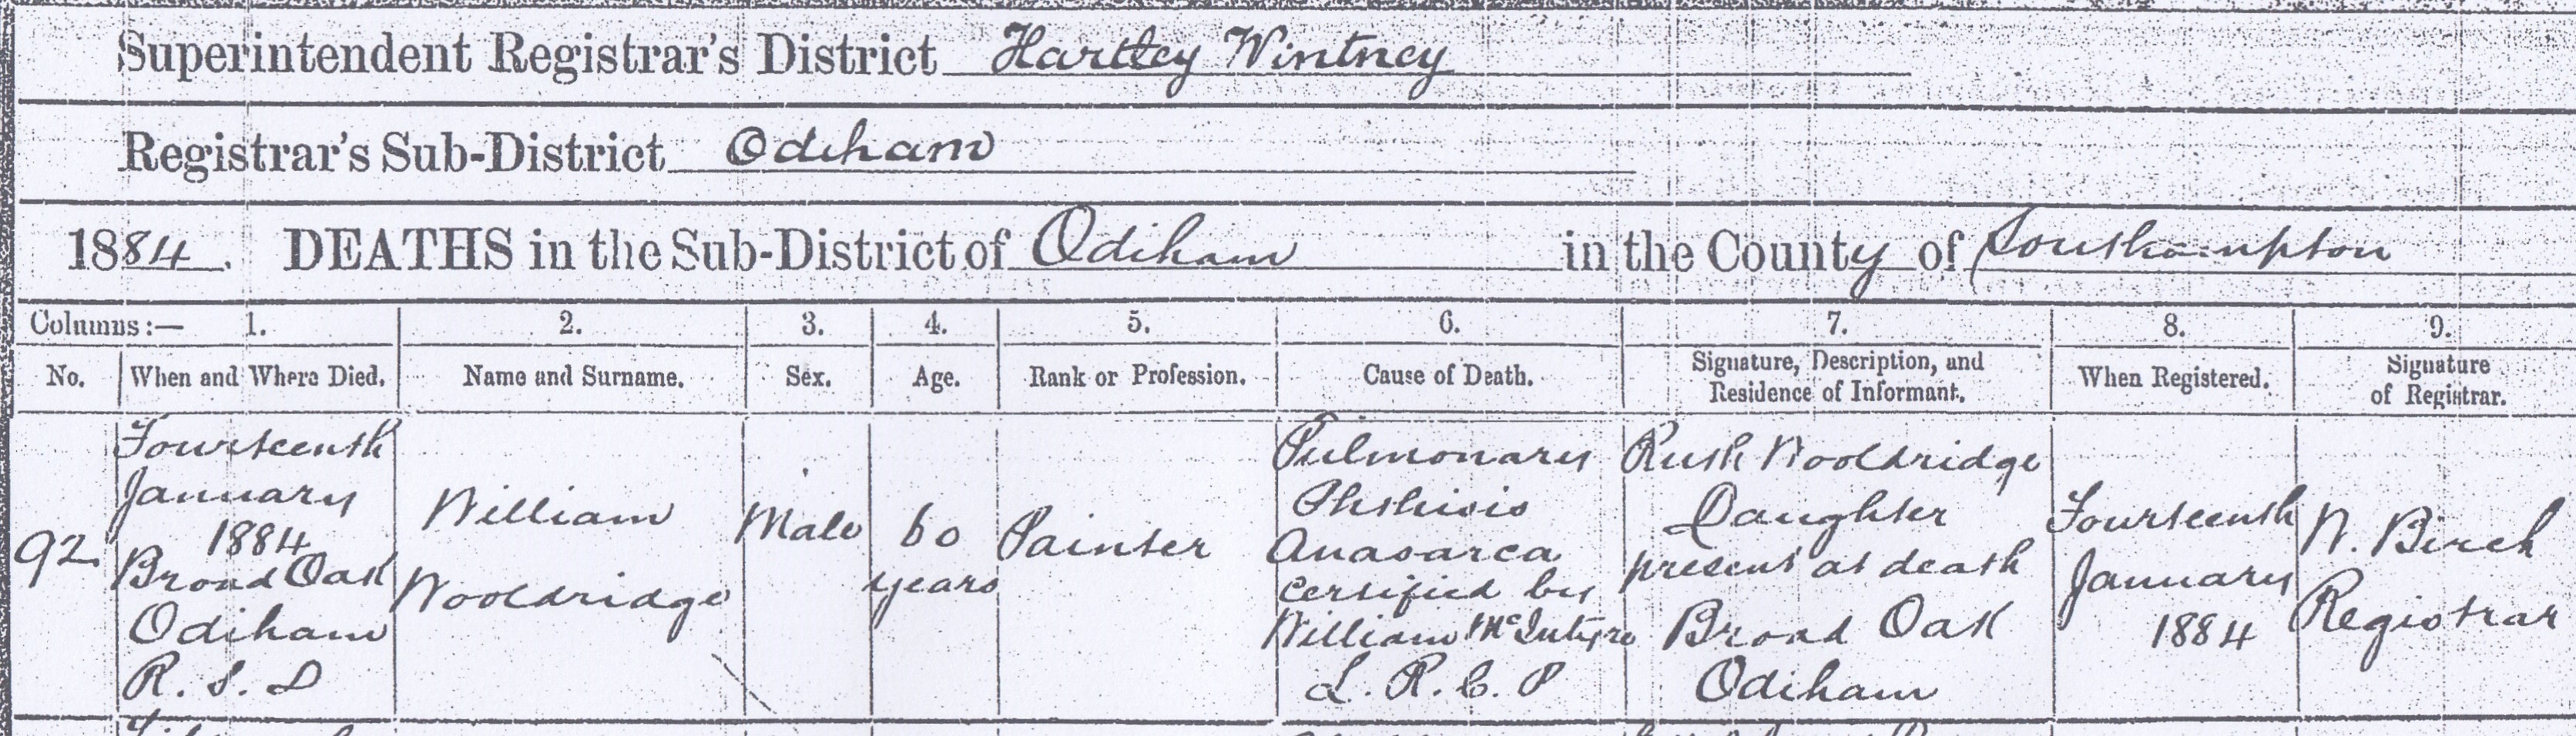 Superintendent Registrar's District Hartley Wintney
Registrar's Sub-District Odiham
1884. DEATHS in the Sub-District of Odiham in the County of Southampton
Columns:— 1. 2. 3. 4. 5. 6. 7. 8. 9.
No. When and Where Died. Name and Surname. Sex. Age. Rank or Profession. Cause of Death. Signature, Description, and Residence of Informant. When Registered. Signature of Registrar.
92.
Fourteenth
January
1884
Broad Oak
Odiham
R. S. D
William
Wooldridge
Male
60
years
Painter
Pulmonary
Phthisis
Anasarca
certified by
William McIntyre
L. R. C. P
Ruth Wooldridge
Daughter
present at death
Broad Oak
Odiham
Fourteenth
January
1884
W. Birch
Registrar